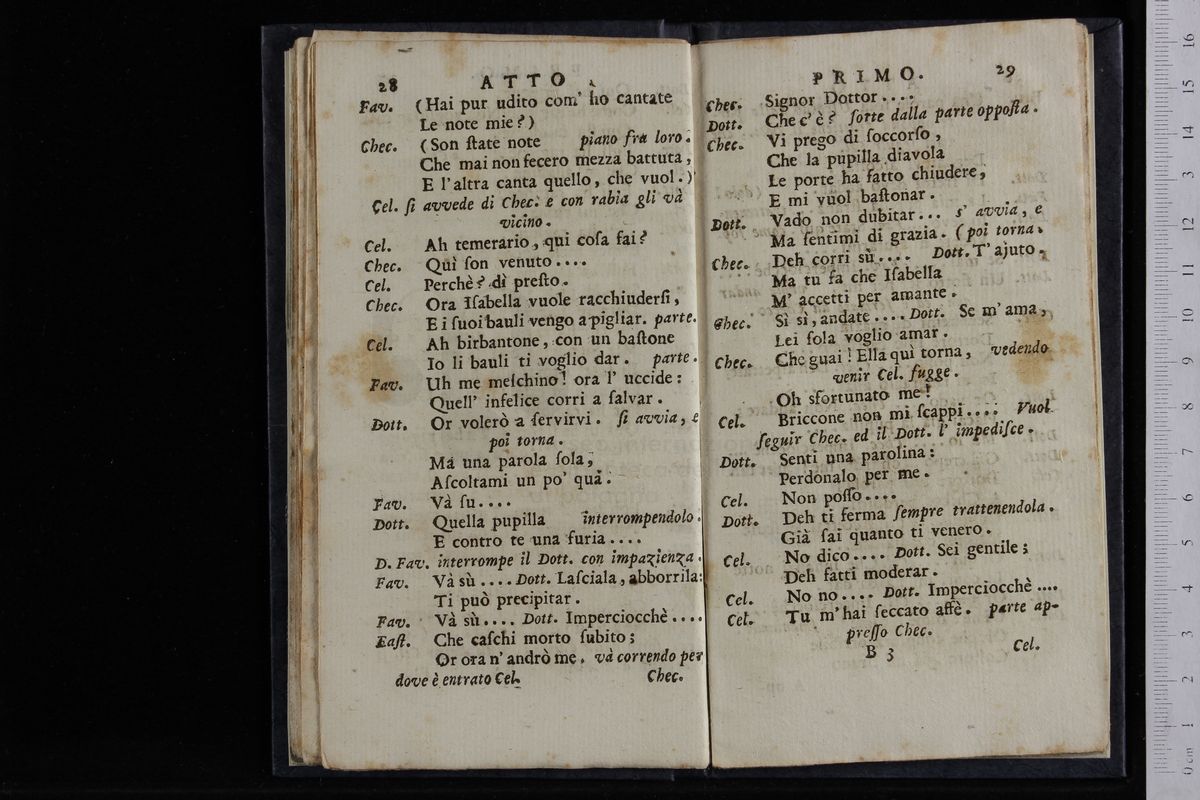 28 ATTO
Fav. (Hai pur udito com' ho cantate
Le note mie?)
Chec. (Son ſtate note piano fra loro.
Che mai non fecero mezza battuta,
E l'altra canta quello, che vuol.)
Cel. ſi avvede di Chec. e con rabia gli và
vicino.
Cel. Ah temerario, qui coſa fai?
Chec. Quì ſon venuto....
Cel. Perchè? dì preſto.
Chec. Ora Iſabella vuole racchiuderſi,
E i ſuoi bauli vengo a pigliar. parte.
Cel. Ah birbantone, con un baſtone
Io li bauli ti voglio dar. parte.
Fav. Uh me meſchino! ora l' uccide:
Quell' infelice corri a ſalvar.
Dott. Or volerò a ſervirvi. ſi avvia, e
poi torna.
Má una parola ſola,
Aſcoltami un po' quà.
Fav. Và ſu....
Dott. Quella pupilla interrompendolo.
E contro te una furia....
D. Fav. interrompe il Dott. con impazienza.
Fav. Và sù.... Dott. Laſciala, abborrila:
Ti può precipitar.
Fav. Và sù.... Dott. Imperciocchè....
Faſt. Che caſchi morto ſubito;
Or ora n' andrò me. và correndo per
dove è entrato Cel.
Chec.
PRIMO. 29
Chec. Signor Dottor....
Dott. Che c' è? ſorte dalla parte oppoſta.
Chec. Vi prego di ſoccorſo,
Che la pupilla diavola
Le porte ha fatto chiudere,
E mi vuol baſtonar.
Dott. Vado non dubitar... s' avvia, e
Ma ſentimi di grazia. (poi torna.
Chec. Deh corri sù.... Dott. T' ajuto,
Ma tu fa che Iſabella
M' accetti per amante.
Chec. Sì sì, andate.... Dott. Se m' ama,
Lei ſola voglio amar.
Chec. Che guai! Ella quì torna, vedendo
venir Cel. fugge.
Oh sfortunato me!
Cel. Briccone non mi ſcappi.... Vuol
ſeguir Chec. ed il Dott. l' impediſce.
Dott. Senti una parolina:
Perdonalo per me.
Cel. Non poſſo....
Dott. Deh ti ferma ſempre trattenendola.
Già ſai quanto ti venero.
Cel. No dico.... Dott. Sei gentile;
Deh fatti moderar.
Cel. No no.... Dott. Imperciocchè....
Cel. Tu m' hai ſeccato affè. parte ap-
preſſo Chec.
B 3
Cel.